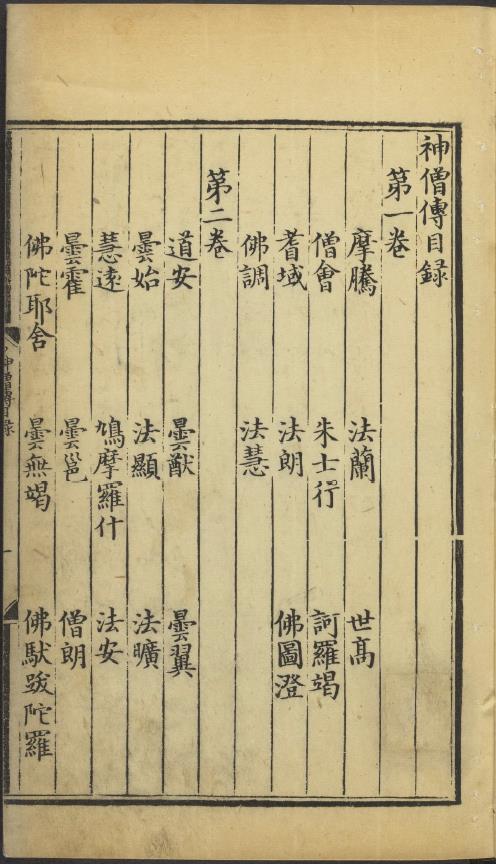 神僧傳目録
第一卷
摩騰 法蘭 世髙
僧會 朱士行 訶羅竭
耆域 法朗 佛圖澄
佛調 法慧
第二卷
道安 曇猷 曇翼
曇始 法顯 法曠
慧遠 鳩摩羅什 法安
曇霍 曇邕 僧朗
佛陀耶舍 曇無竭 佛馱跋陀羅
神僧傳目録
一